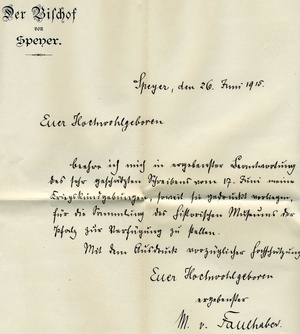 Der Bischof
von
Speyer.
Speyer, den 26. Juni 1915.
Euer Hochwohlgeboren
beehre ich mich in ergebenster Beantwortung
des sehr geschätzten Schreibens vom 17. Juni meine
Kriegskundgebungen, soweit sie gedruckt vorliegen,
für die Sammlung des historischen Museums der
Pfalz zur Verfügung zu stellen.
Mit dem Ausdruck vorzüglicher Hochschätzung
Euer Hochwohlgeboren
ergebenster
M. v. Faulhaber.